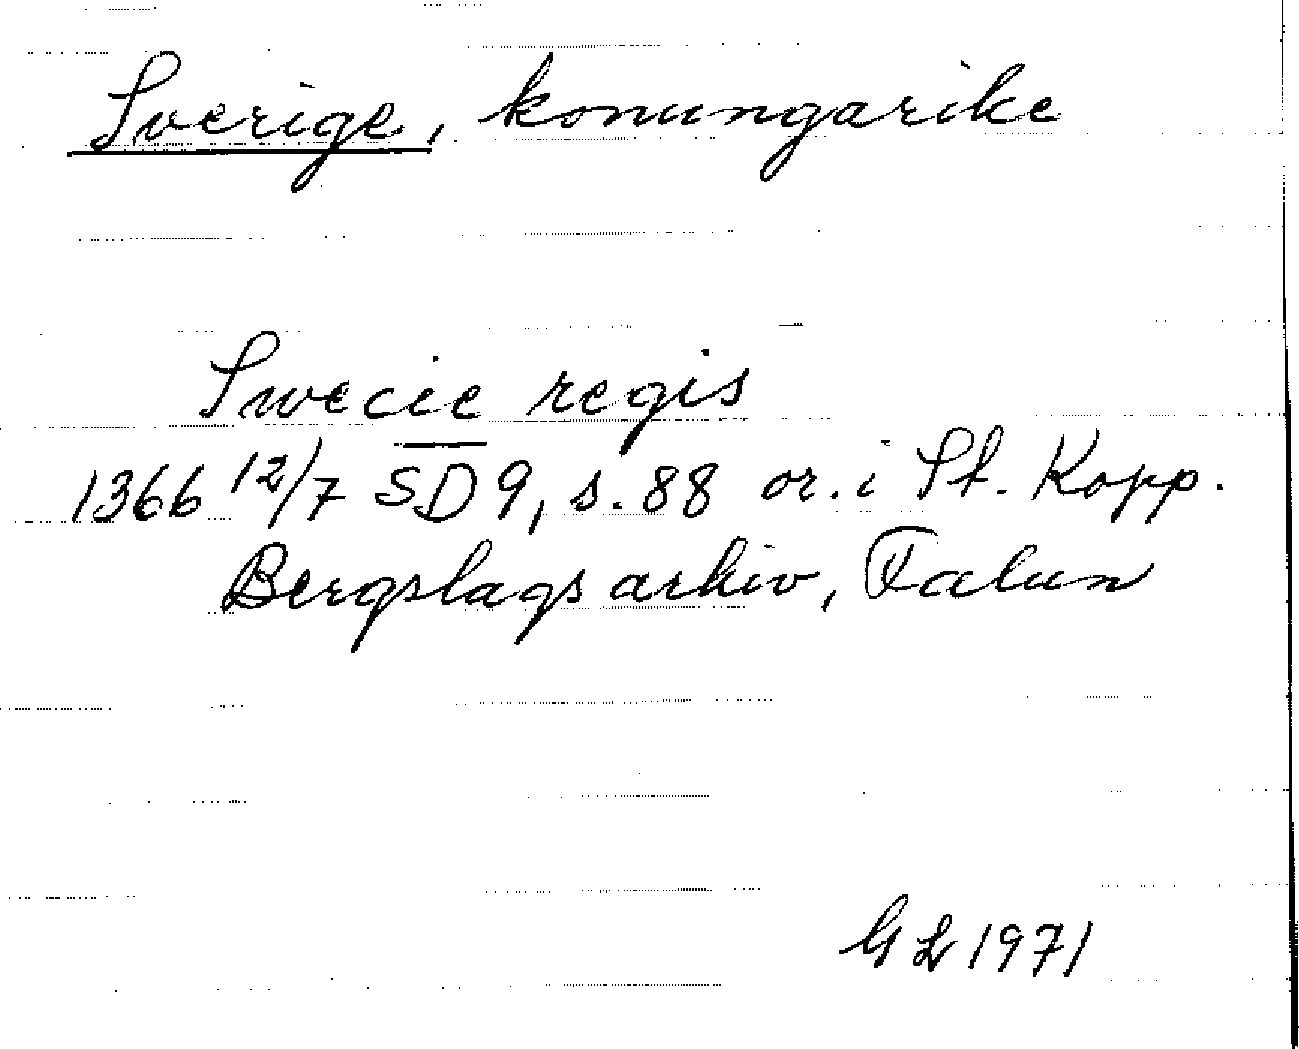 Sverige, konungarike
Swecie regis
1366 12/7 SD 9, s. 88 or. i St. Kopp.
Bergslags arkiv, Falun
GL 1971